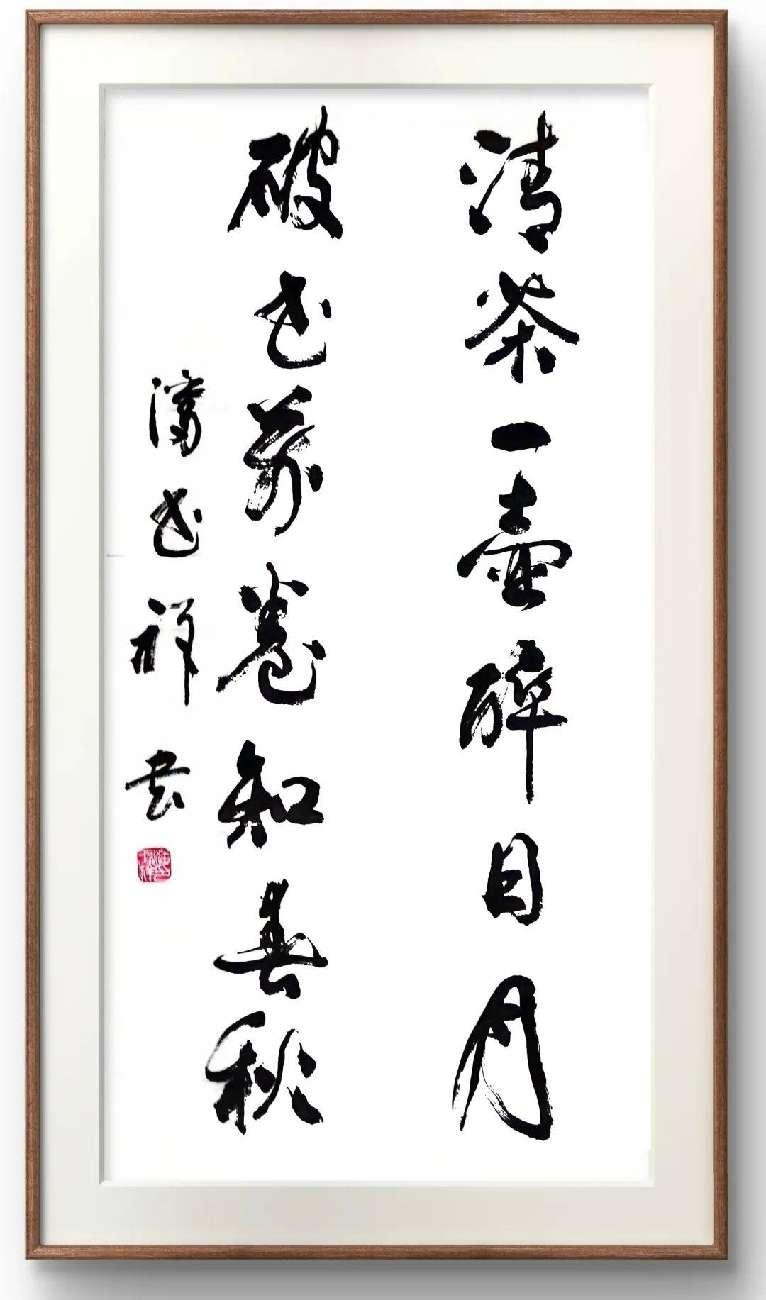 清茶一壺醉日月
破书萬卷知春秋
潘书祥 书